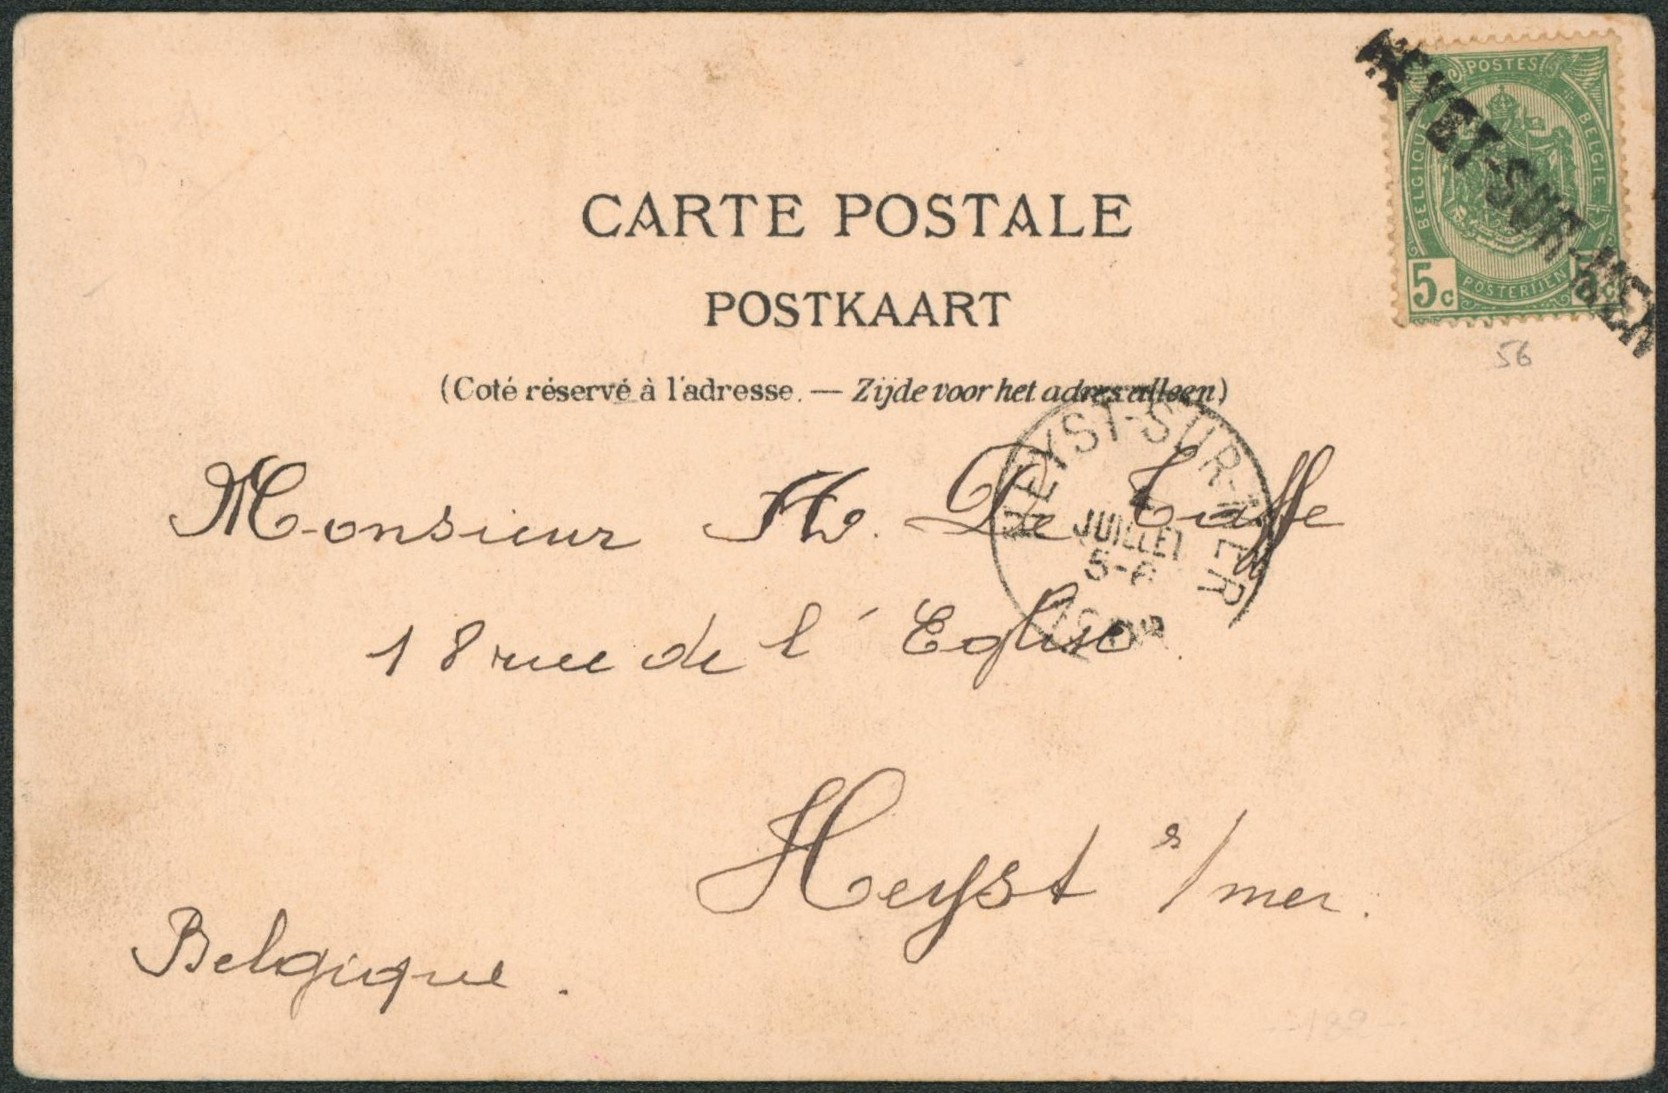 POSTES
BELGIQUE
BELGIË
5c
POSTERIJEN
HEYST-SUR-MER
56
CARTE POSTALE
POSTKAART
(Coté réservé à l'adresse. — Zijde voor het adres alleen)
HEYST-SUR-MER
JUILLET
5-6
Monsieur H. De Taffe
18 rue de l'Eglise.
Heyst s/mer.
Belgique.